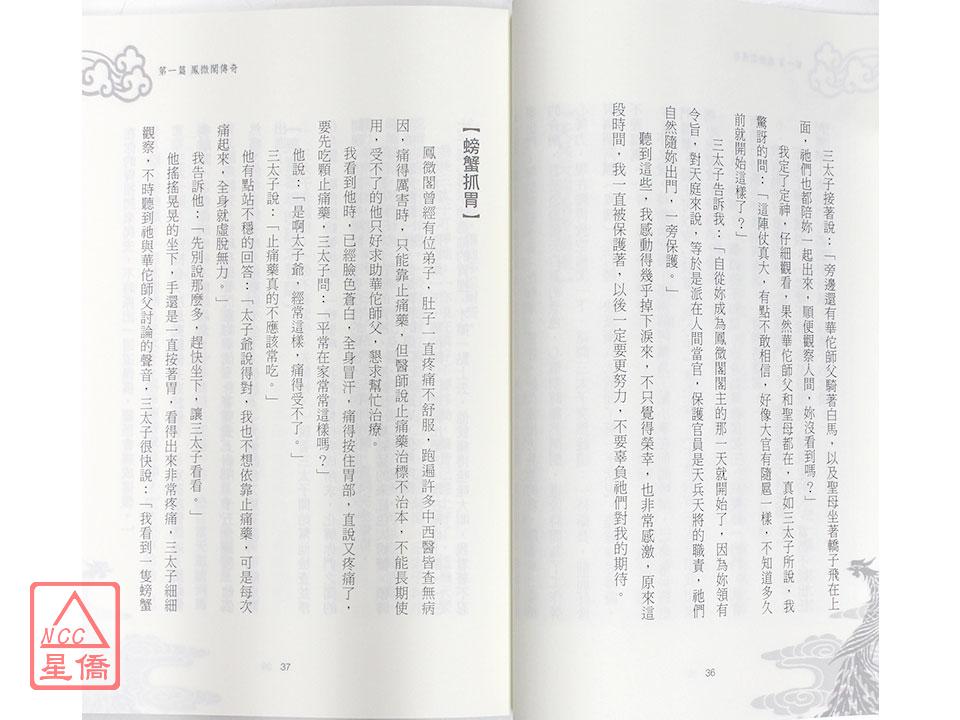 三太子接著說：「旁邊還有華佗師父騎著白馬，以及聖母坐著轎子飛在上
面，祂們也都陪妳一起出來，順便觀察人間，妳沒看到嗎？」
我定了定神，仔細觀看，果然華佗師父和聖母都在，真如三太子所說，我
驚訝的問：「這陣仗真大，有點不敢相信，好像大官有隨扈一樣，不知道多久
前就開始這樣了？」
三太子告訴我：「自從妳成為鳳微閣閣主的那一天就開始了，因為妳領有
令旨，對天庭來說，等於是派在人間當官，保護官員是天兵天將的職責，祂們
自然隨妳出門，一旁保護。」
聽到這些，我感動得幾乎掉下淚來，不只覺得榮幸，也非常感激，原來這
段時間，我一直被保護著，以後一定要更努力，不要辜負祂們對我的期待。
36
第一篇 鳳微閣傳奇
【螃蟹抓胃】
鳳微閣曾經有位弟子，肚子一直疼痛不舒服，跑遍許多中西醫皆查無病
因，痛得厲害時，只能靠止痛藥，但醫師說止痛藥治標不治本，不能長期使
用，受不了的他只好求助華佗師父，懇求幫忙治療。
我看到他時，已經臉色蒼白，全身冒汗，痛得按住胃部，直說又疼痛了，
要先吃顆止痛藥，三太子問：「平常在家常常這樣嗎？」
他說：「是啊太子爺，經常這樣，痛得受不了。」
三太子說：「止痛藥真的不應該常吃。」
他有點站不穩的回答：「太子爺說得對，我也不想依靠止痛藥，可是每次
痛起來，全身就虛脫無力。」
我告訴他：「先別說那麼多，趕快坐下，讓三太子看看。」
他搖搖晃晃的坐下，手還是一直按著胃，看得出來非常疼痛，三太子細細
觀察，不時聽到祂與華佗師父討論的聲音，三太子很快說：「我看到一隻螃蟹
37
NCC
星僑